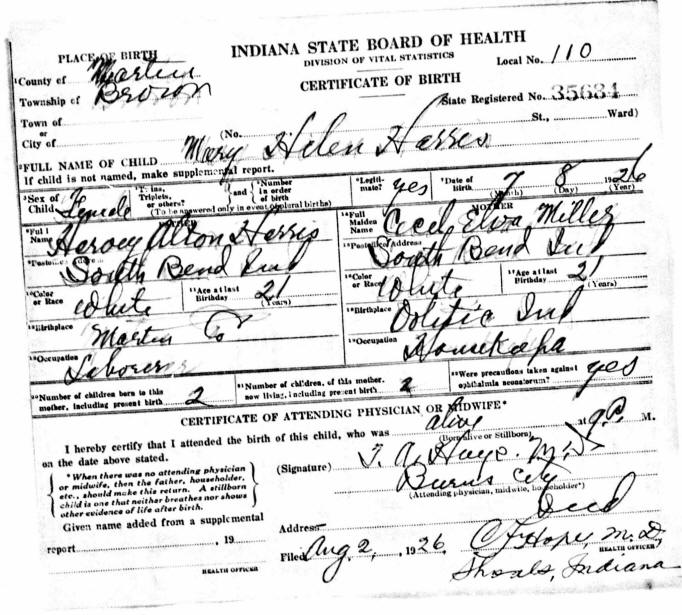 INDIANA STATE BOARD OF HEALTH
DIVISION OF VITAL STATISTICS
CERTIFICATE OF BIRTH
Local No. 110
PLACE OF BIRTH
County of Martin
Township of Brown
State Registered No. 35634
Town of
or
City of
(No. St., Ward)
FULL NAME OF CHILD Mary Helen Harris
If child is not named, make supplemental report.
Sex of Child Female
Twins, Triplets, or others? and Number in order of birth
(To be answered only in event of plural births)
Legitimate? yes
Date of Birth 7 8 1926
(Month) (Day) (Year)
Full Name Harvey Alton Harris
South Bend Ind
Color or Race White
Age at last Birthday 21 (Years)
Birthplace Martin Co
Occupation Laborer
MOTHER
Full Maiden Name Cecil Elva Miller
Postoffice Address South Bend Ind
Color or Race White
Age at last Birthday 21 (Years)
Birthplace Oolitic Ind
Occupation
Number of children born to this mother, including present birth 2
Number of children, of this mother, now living, including present birth 2
Were precautions taken against ophthalmia neonatorum? yes
CERTIFICATE OF ATTENDING PHYSICIAN OR MIDWIFE*
I hereby certify that I attended the birth of this child, who was alive at 9 P. M.
(Born alive or Stillborn)
on the date above stated.
* When there was no attending physician
or midwife, then the father, householder,
etc., should make this return. A stillborn
child is one that neither breathes nor shows
other evidence of life after birth.
(Signature) M.D.
Burns City
(Attending physician, midwife, householder*)
Ind
Given name added from a supplemental
report , 19
HEALTH OFFICER
Address
Filed Aug 2, 1926
M.D.
HEALTH OFFICER
Shoals, Indiana